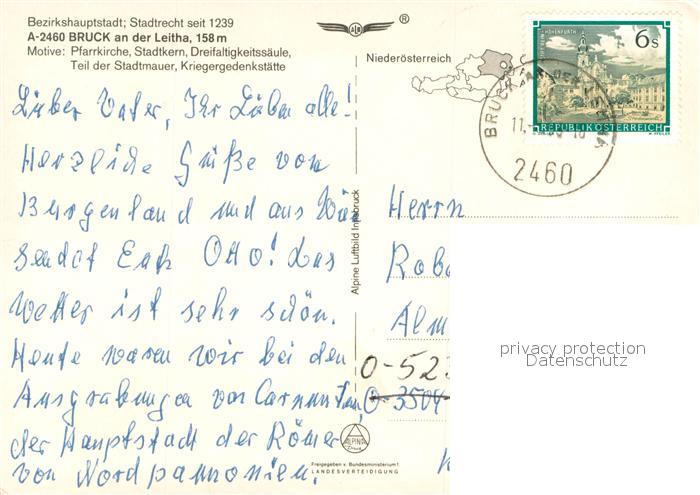 Bezirkshauptstadt; Stadtrecht seit 1239
A-2460 BRUCK an der Leitha, 158 m
Motive: Pfarrkirche, Stadtkern, Dreifaltigkeitssäule,
Teil der Stadtmauer, Kriegergedenkstätte
Niederösterreich
®
6s
REPUBLIK ÖSTERREICH
BRUCK AN DER
11.
2460
Lieber Vater, Ihr Lieben alle!
Herzliche Grüße von
Burgenland und aus
sendet Euch Otto! Das
Wetter ist sehr schön.
Heute waren wir bei den
Ausgrabungen von Carnuntum,
der Hauptstadt der Römer
von Nordpannonien.
Alpine Luftbild Innsbruck
ALPINE
Freigegeben v. Bundesministerium f.
LANDESVERTEIDIGUNG
Herrn
Robe
Alm
O-52
O-3504
privacy protection
Datenschutz